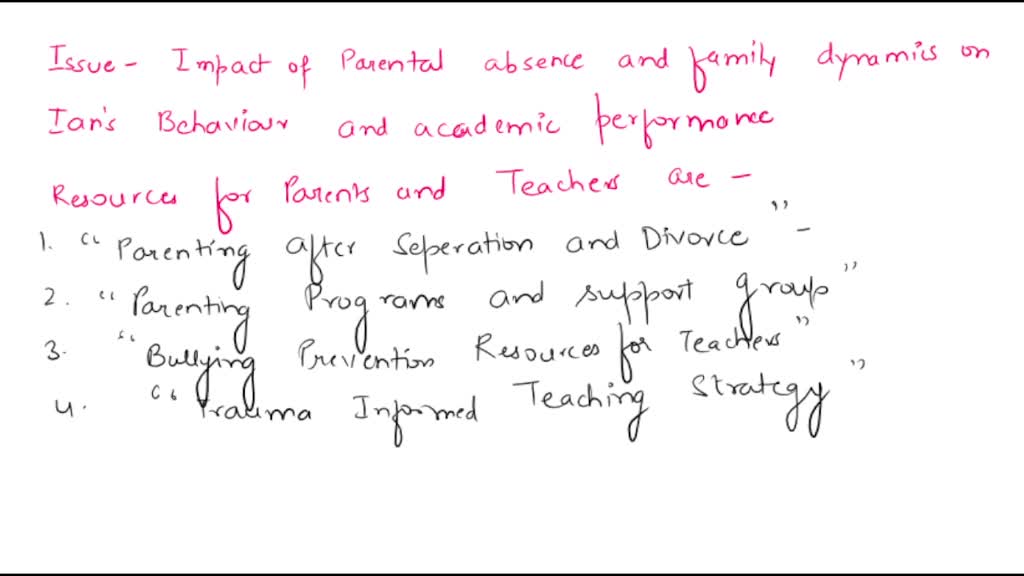 Issue - Impact of Parental absence and family dynamics on
Ian's Behaviour and academic performance
Resources for Parents and Teachers are -
1. "Parenting after Seperation and Divorce" -
2. "Parenting Programs and support group"
3. "Bullying Prevention Resources for Teachers"
4. "Trauma Informed Teaching Strategy"